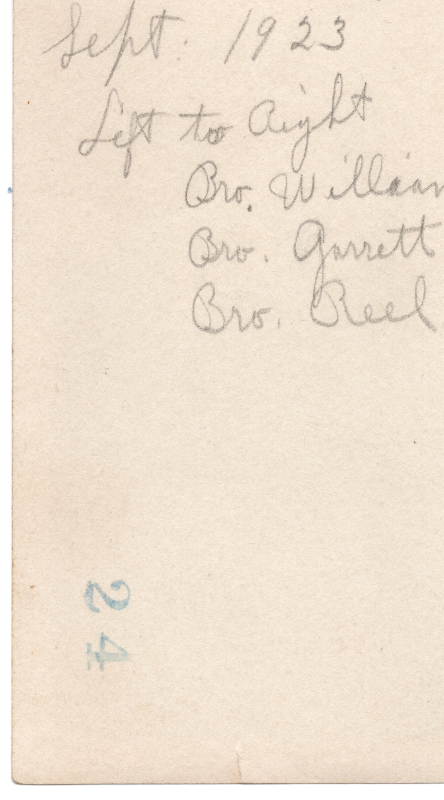 Sept. 1923
Left to Right
Bro. William
Bro. Garrett
Bro. Reel
24